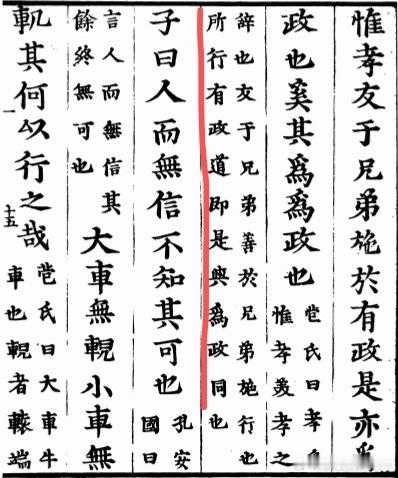 惟孝友于兄弟施於有政是亦爲
政也奚其爲爲政也
苞氏曰孝乎
惟孝美孝之
辭也友于兄弟善於兄弟施行也
所行有政道即是與爲政同也
子曰人而無信不知其可也
孔安
國曰
言人而無信其
餘終無可也
大車無輗小車無
軏其何以行之哉
苞氏曰大車牛
車也輗者轅端
十五